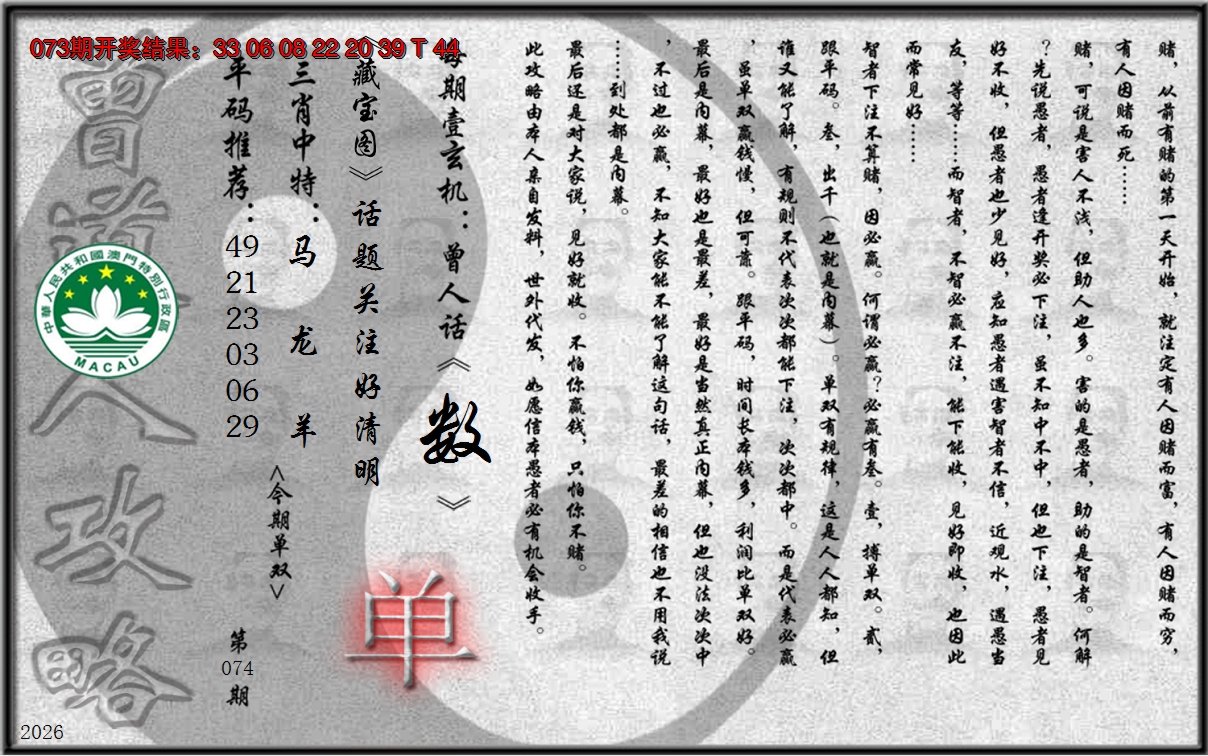 073期开奖结果：33 06 08 22 20 39 T 44
赌，从前有赌的第一天开始，就注定有人因赌而富，有人因赌而穷，
有人因赌而死……
赌，可说是害人不浅，但助人也多。害的是愚者，助的是智者。何解
？先说愚者，愚者逢开奖必下注，虽不知中不中，但也下注，愚者见
好不收，但愚者也少见好，应知愚者遇害智者不信，近观水，遇愚当
友，等等……而智者，不智必赢不注，能下能收，见好即收，也因此
而常见好……
智者下注不算赌，因必赢。何谓必赢？必赢有叁。壹，搏单双。贰，
跟平码。叁，出千（也就是内幕）。单双有规律，这是人人都知，但
谁又能了解，有规则不代表次次都能下注，次次都中。而是代表必赢
，虽单双赢钱慢，但可靠。跟平码，时间长本钱多，利润比单双好。
最后是内幕，最好也是最差，最好是当然真正内幕，但也没法次次中
，不过也必赢，不知大家能不能了解这句话，最差的相信也不用我说
……到处都是内幕。
最后还是对大家说，见好就收。不怕你赢钱，只怕你不赌。
此攻略由本人亲自发料，世外代发，如愿信本愚者必有机会收手。
每期壹玄机：曾人话《数》
《藏宝图》话题关注好清明
单
三肖中特：马 龙 羊
<今期单双>
平码推荐：
49
21
23
03
06
29
第
074
期
曾道人攻略
中華人民共和國澳門特別行政區
MACAU
2026